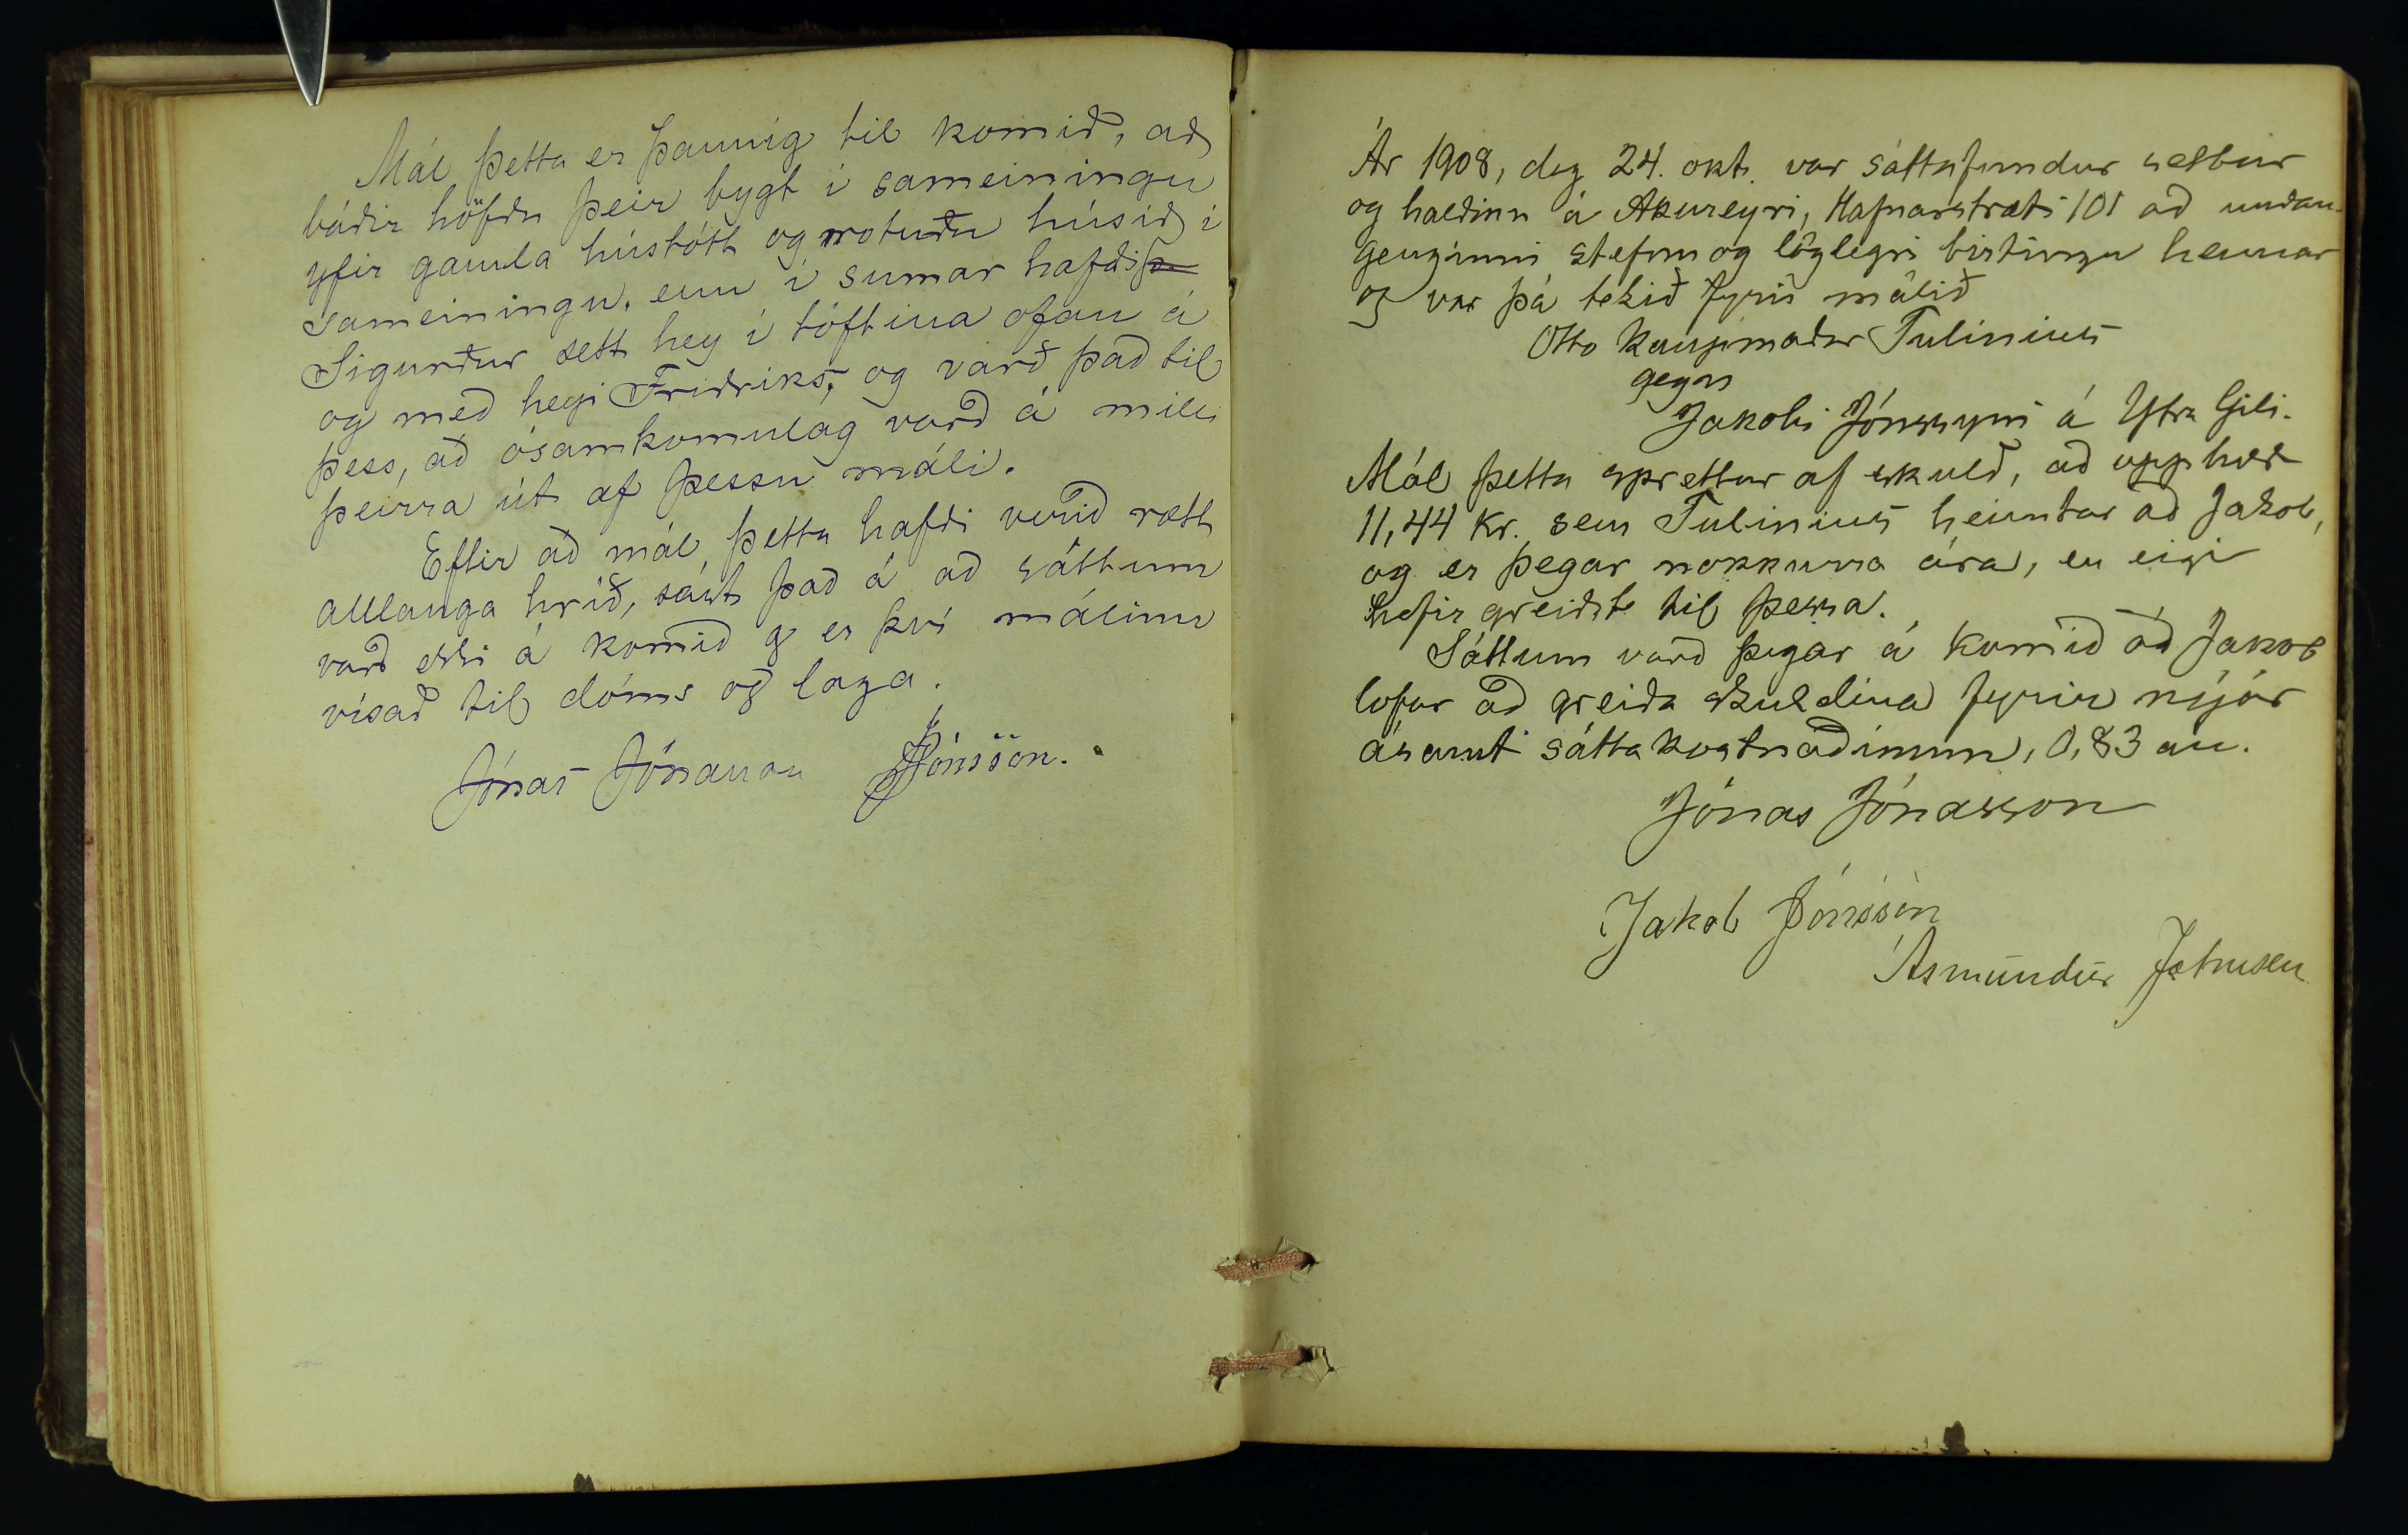 Mál þetta er þannig til komið, að
báðir höfðu þeir bygt í sameiningu
yfir gamla hústótt og notuðu húsið í
sameiningu. enn í sumar hafði þ
Sigurður sett hey í tóftina ofan á
og með heyi Friðriks, og varð það til
þess, að ósamkomulag varð á milli
þeirra út af þessu máli.
Eftir að mál þetta hafði verið rætt
alllanga hríð, sást það á að sáttum
varð ekki á komið og er því málinu
vísað til dóms og laga.
Jónas Jónasson Jónsson.
Ár 1908, dag 24. okt. var sáttafundur settur
og haldinn á Akureyri, Hafnarstræti 101 að undan-
genginni stefnu og löglegri birtingu hennar
og var þá tekið fyrir málið
Otto kaupmaður Tulinius
gegn
Jakobi Jónssyni á Ytra Gili.
Mál þetta sprettur af skuld, að upphæð
11,44 kr. sem Tulinius heimtar að Jakob,
og er þegar nokkurra ára, en eigi
hefir greiðst til þessa.
Sáttum varð þegar á komið að Jakob
lofar að greiða skuldina fyrir nýjár
ásamt sáttakostnaðinum, 0,83 au.
Jónas Jónasson
Jakob Jónsson
Ásmundur Johnsen